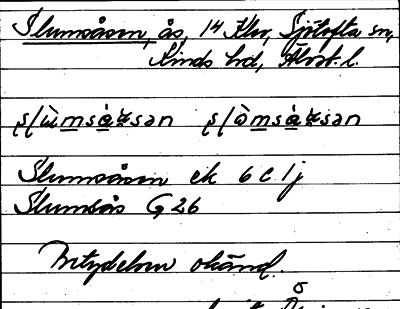 Slumsåsen, ås, 14 Klev, Sjötofta sn,
Kinds hd, Älvsb. l.
ʂlùmsà̱ʀsən ʂlòmsà̱ʀsən
Slumsåsen ek 6 c 1 j
Slumsås G 26
Betydelsen okänd.